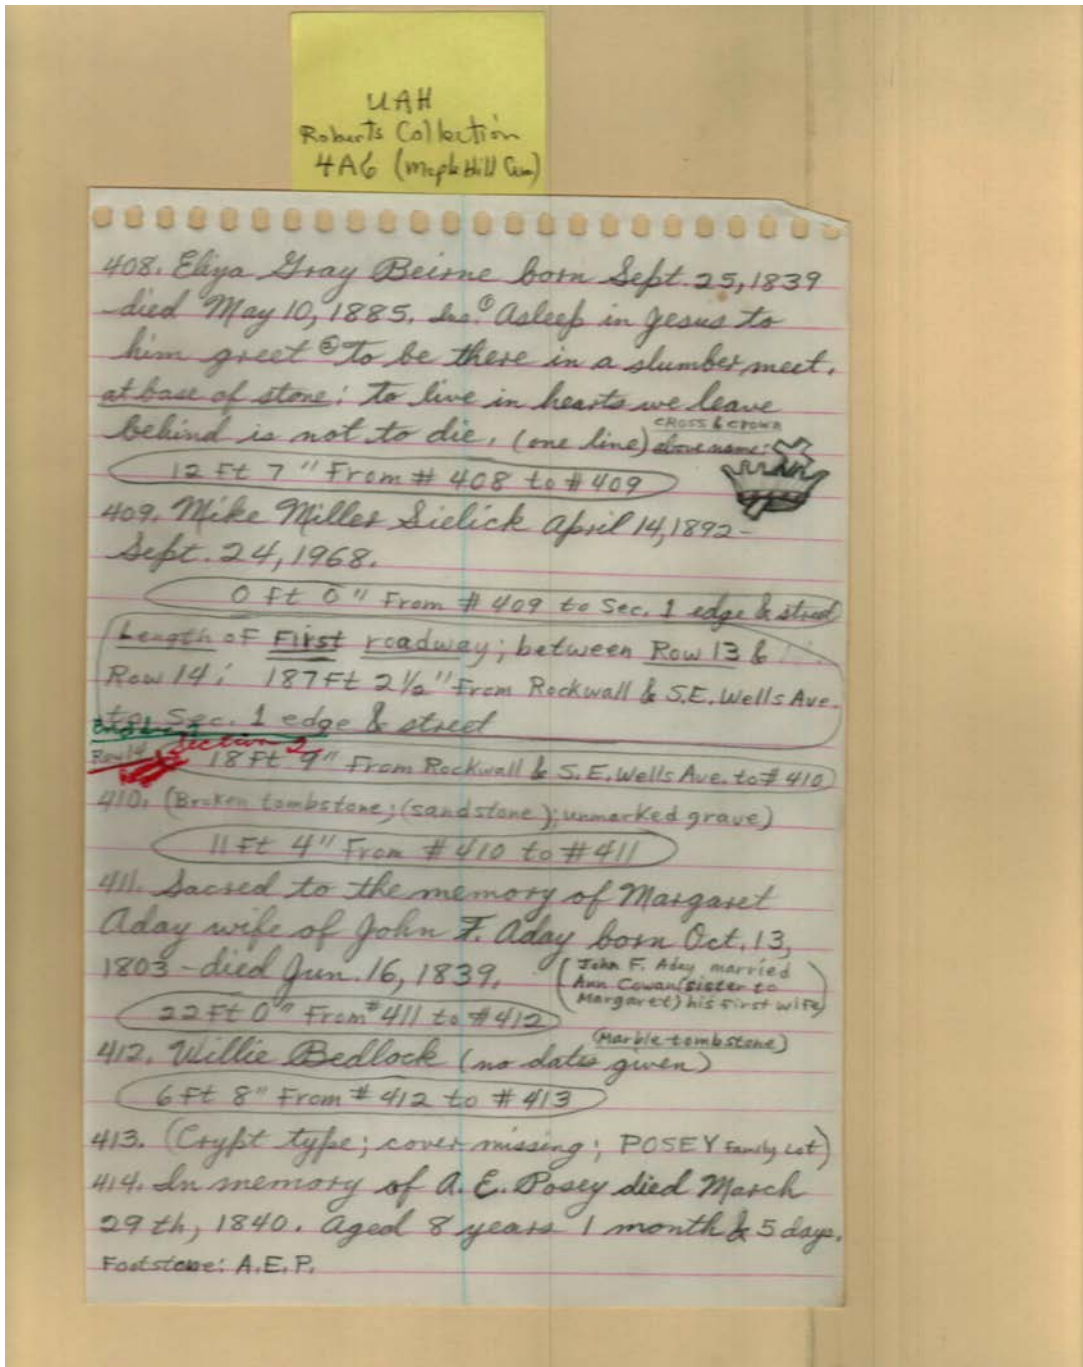 UAH
Roberts Collection
4A6 (Maple Hill Cem)
408. Eliza Gray Beirne born Sept. 25, 1839
died May 10, 1885. Ins. ① Asleep in Jesus to
him greet ② To be there in a slumber, meet.
at base of stone: To live in hearts we leave
behind is not to die. (one line) cross & crown above name:
12 Ft 7" From # 408 to # 409
409. Mike Miller Sielick April 14, 1892-
Sept. 24, 1968.
0 Ft 0" From # 409 to Sec. 1 edge & street
Length of First roadway; between Row 13 &
Row 14: 187 Ft 2 1/2" From Rockwall & S.E. Wells Ave.
to Sec. 1 edge & street
Section 2
Row 14
18 Ft 9" From Rockwall & S.E. Wells Ave. to # 410
410. (Broken tombstone; (sandstone); unmarked grave)
11 Ft 4" From # 410 to # 411
411. Sacred to the memory of Margaret
Aday wife of John F. Aday born Oct. 13,
1803 - died Jun. 16, 1839.
(John F. Aday married
Ann Cowan (sister to
Margaret) his first wife)
22 Ft 0" From # 411 to # 412
(Marble tombstone)
412. Willie Bedlock (no dates given)
6 Ft 8" From # 412 to # 413
413. (Crypt type; cover missing; POSEY Family Lot)
414. In memory of A. E. Posey died March
29th, 1840. Aged 8 years 1 month & 5 days.
Footstone: A.E.P.